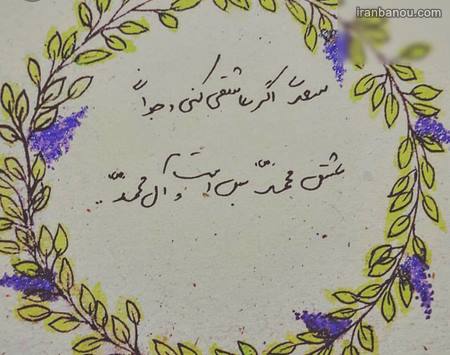 iranbanou.com
سعدی اگر عاشقی کنی و جوانی
عشق محمد بس است و آل محمد